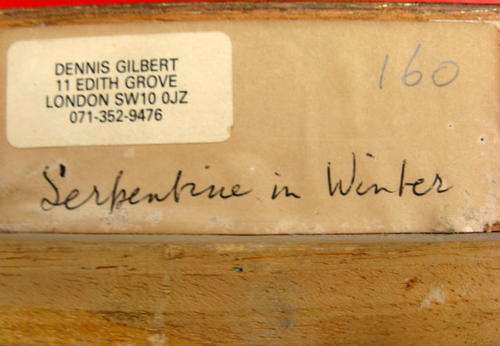 DENNIS GILBERT
11 EDITH GROVE
LONDON SW10 0JZ
071-352-9476
160
Serpentine in Winter